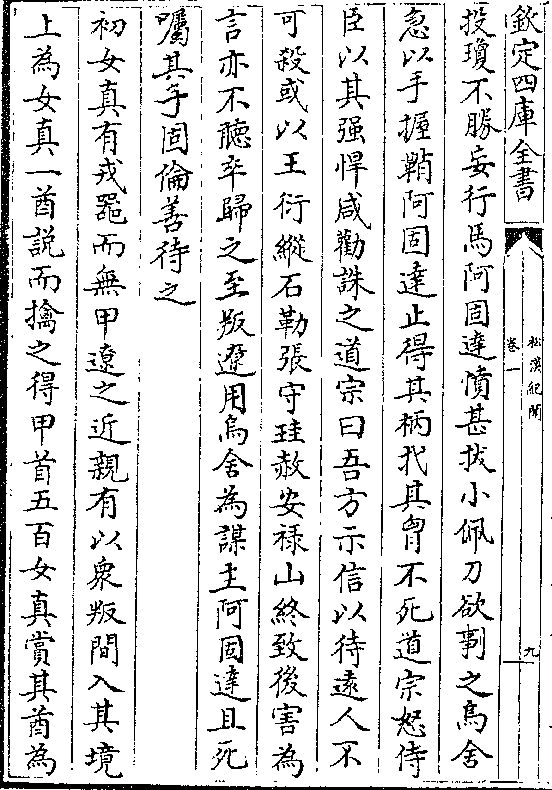 欽定四庫全書
松漠紀聞
卷一
九
投瓊不勝妄行馬阿固達憤甚拔小佩刀欲剚之烏舍
急以手握鞘阿固達止得其柄杙其胷不死道宗怒侍
臣以其强悍咸勸誅之道宗曰吾方示信以待逺人不
可殺或以王衍縱石勒張守珪赦安禄山終致後害為
言亦不聽卒歸之至叛遼用烏舍為謀主阿固達且死
囑其子固倫善待之
初女真有戎器而無甲遼之近親有以衆叛間入其境
上為女真一酋説而擒之得甲首五百女真賞其酋為